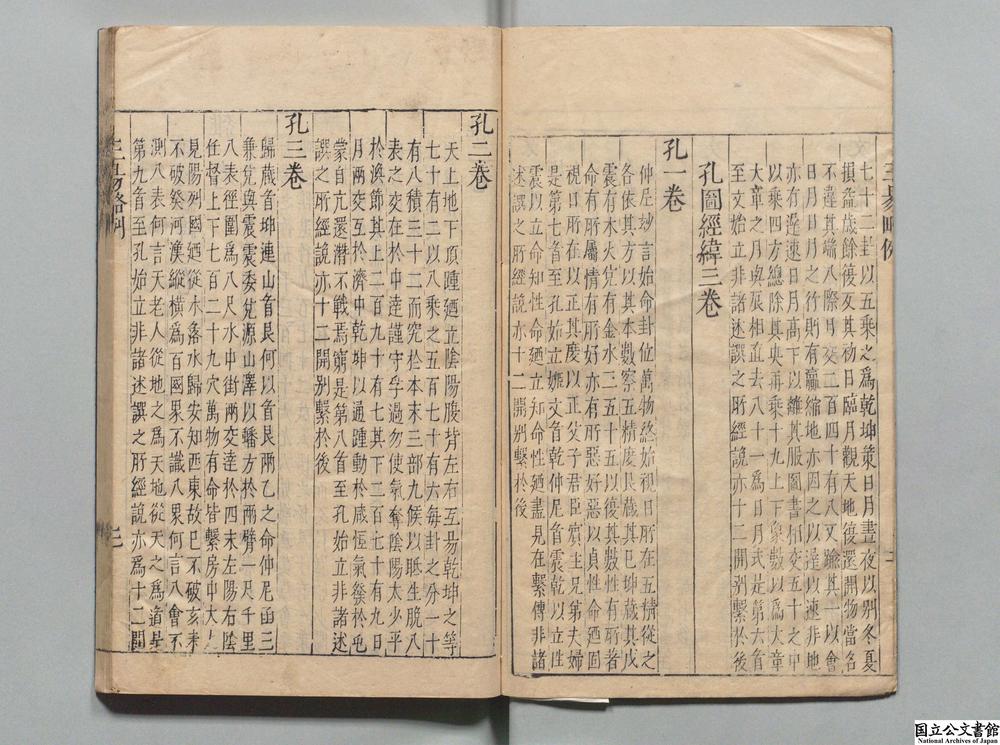 三易略例
七十二卦以五乘之爲乾坤策日月晝夜以别冬夏
損益歳餘後友其初日臨月觀天地後還開物當名
不違其端八際日交二百四十有八又踰其一以會
日月日月之行則有贏縮地亦因之以逹以速非地
亦有遲速日月高下以離其服圖書相交五十之中
以乘四方總除其央再乘十九上下象數以爲大章
大章之月與辰相直去八十一爲日月式是第六首
至文始立非諸述譔之所經説亦十二開别繫於後
孔圖經緯三卷
孔一卷
仲尼玅言始命卦位萬物終始視日所在五精從之
各依其方以其本數察五精度艮藏其巳坤藏其戊
震有木火兊有金水五十五以復其數性有所著
命有所屬情有所好亦有所惡好惡以貞性命廼固
視日所在以正其度以正父子君臣賓主兄第夫婦
是第七首至孔始立嫵文首乾仲尼首震乾以立性
震以立命知性命廼立知命性廼盡見在繫傳非諸
述譔之所經説亦十二開别繫於後
孔二卷
天上地下頂踵廼立陰陽腹背左右互昜乾坤之等
七十有二以八乘之五百七十有六每卦之分一十
有八積三十二而究於本末三部九候以𦘕生脱八
表之交在於中逵謹守乎過勿使氣奪陰陽太少平
於渙節其上二百九十有七其下二百七十有九日
月兩交互於旣濟中乾坤以通踵動於咸恆氣發於屯
蒙首亢還潛不戰焉窮是第八首至孔始立非諸述
譔之所經説亦十二開别繫於後
孔三卷
歸藏首坤連山首艮何以首艮兩乙之命仲尼函三
兼兊與震震委兊源山澤以蟠方於兩臂一尺千里
八表徑圍爲八尺水中街兩交逵於四末左陽右陰
任督上下七百二十九穴萬物有命皆繫房中大上
見陽列國廼從木落水歸安知西東故巳不破亥來
不破癸河漢縱横爲百國果不讖八果何言八會不
測八表何言天老人從地之爲天地從天之爲道是
第九首至孔始立非諸述譔之所經説亦爲十二開
三昜略例
国立公文書館
National Archives of Japan